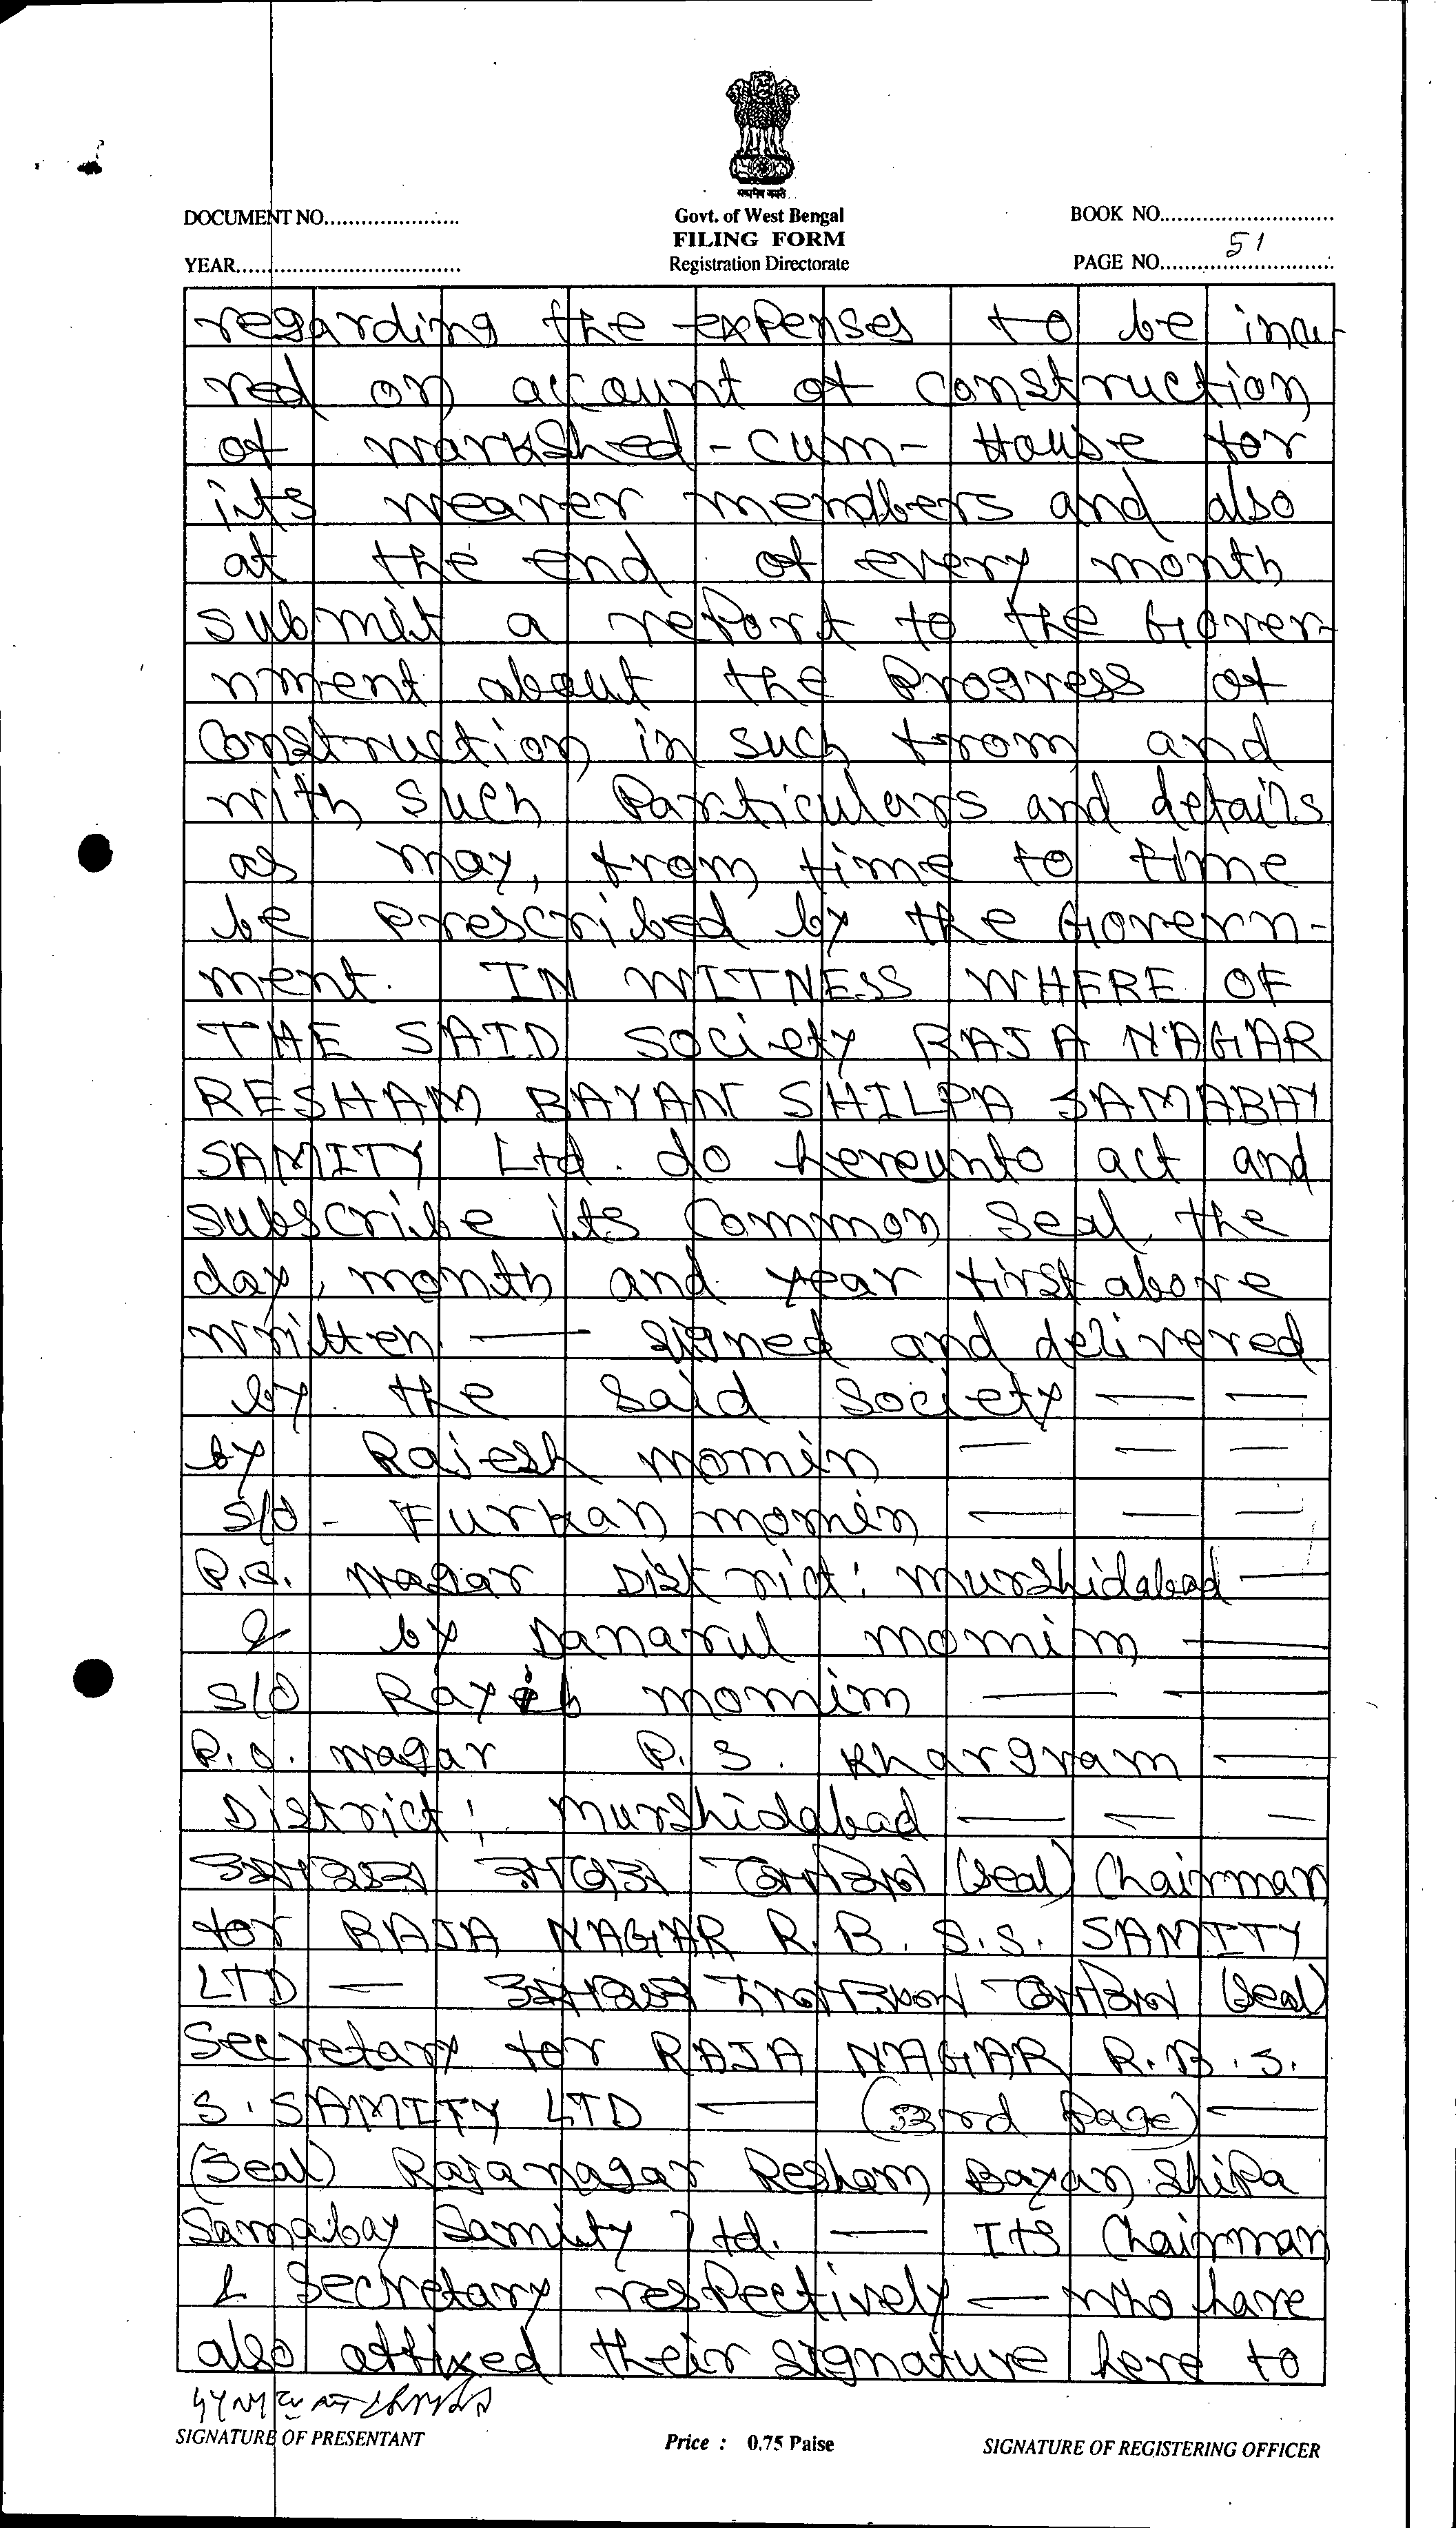 सत्यमेव जयते
DOCUMENT NO.
Govt. of West Bengal
BOOK NO.
FILING FORM
YEAR
Registration Directorate
PAGE NO. 51
regarding the expenses to be incu-
red on account of construction
of workshed-cum-House for
its weaver members and also
at the end of every month
submit a report to the Gover-
nment about the Progress of
Construction in such from and
with such Particulars and details
as may, from time to time
be Prescribed by the Govern-
ment. IN WITNESS WHERE OF
THE SAID Society RAJA NAGAR
RESHAM BAYAN SHILPA SAMABAY
SAMITY Ltd. do hereunto act and
subscribe its Common Seal, the
day, month and year first above
written — signed and delivered
by the Said Society — —
by Rajesh momin — — —
s/o - Furkan momin — — —
P.O. Nagar District: Murshidabad —
& by Danarul momim —
s/o Rayeb momim — —
P.O. Nagar P.S. Khargram —
District: Murshidabad — — —
(Seal) Chairman
for RAJA NAGAR R.B.S.S. SAMITY
LTD — (Seal)
Secretary for RAJA NAGAR R.B.S.
S. SAMITY LTD — (3rd Page) —
(Seal) Rajanagar Resham Bayan Shilpa
Samabay Samity Ltd. — Its Chairman
& Secretary respectively — who have
also affixed their signature here to
SIGNATURE OF PRESENTANT
Price : 0.75 Paise
SIGNATURE OF REGISTERING OFFICER